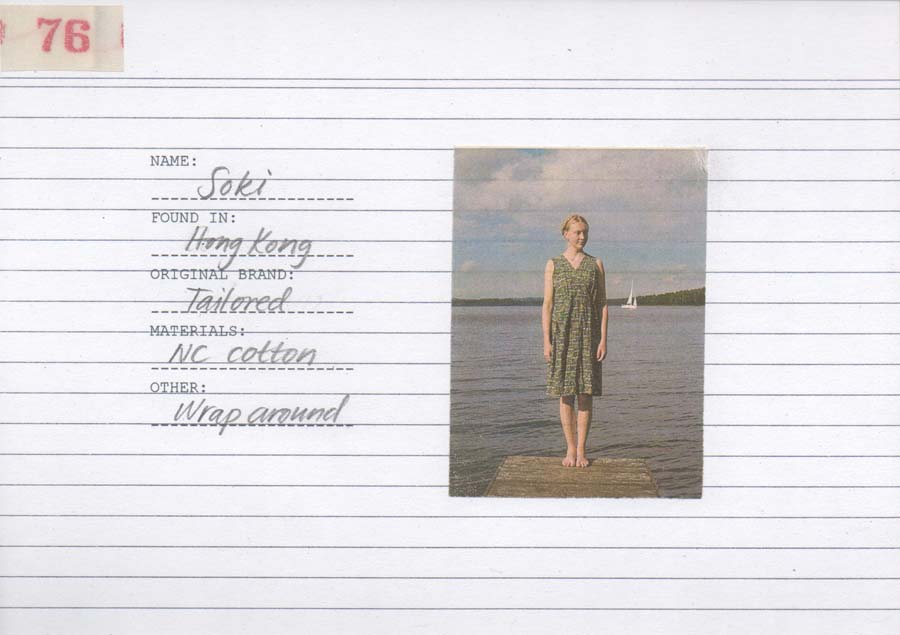 76
NAME:
Soki
FOUND IN:
Hong Kong
ORIGINAL BRAND:
Tailored
MATERIALS:
NC cotton
OTHER:
Wrap around